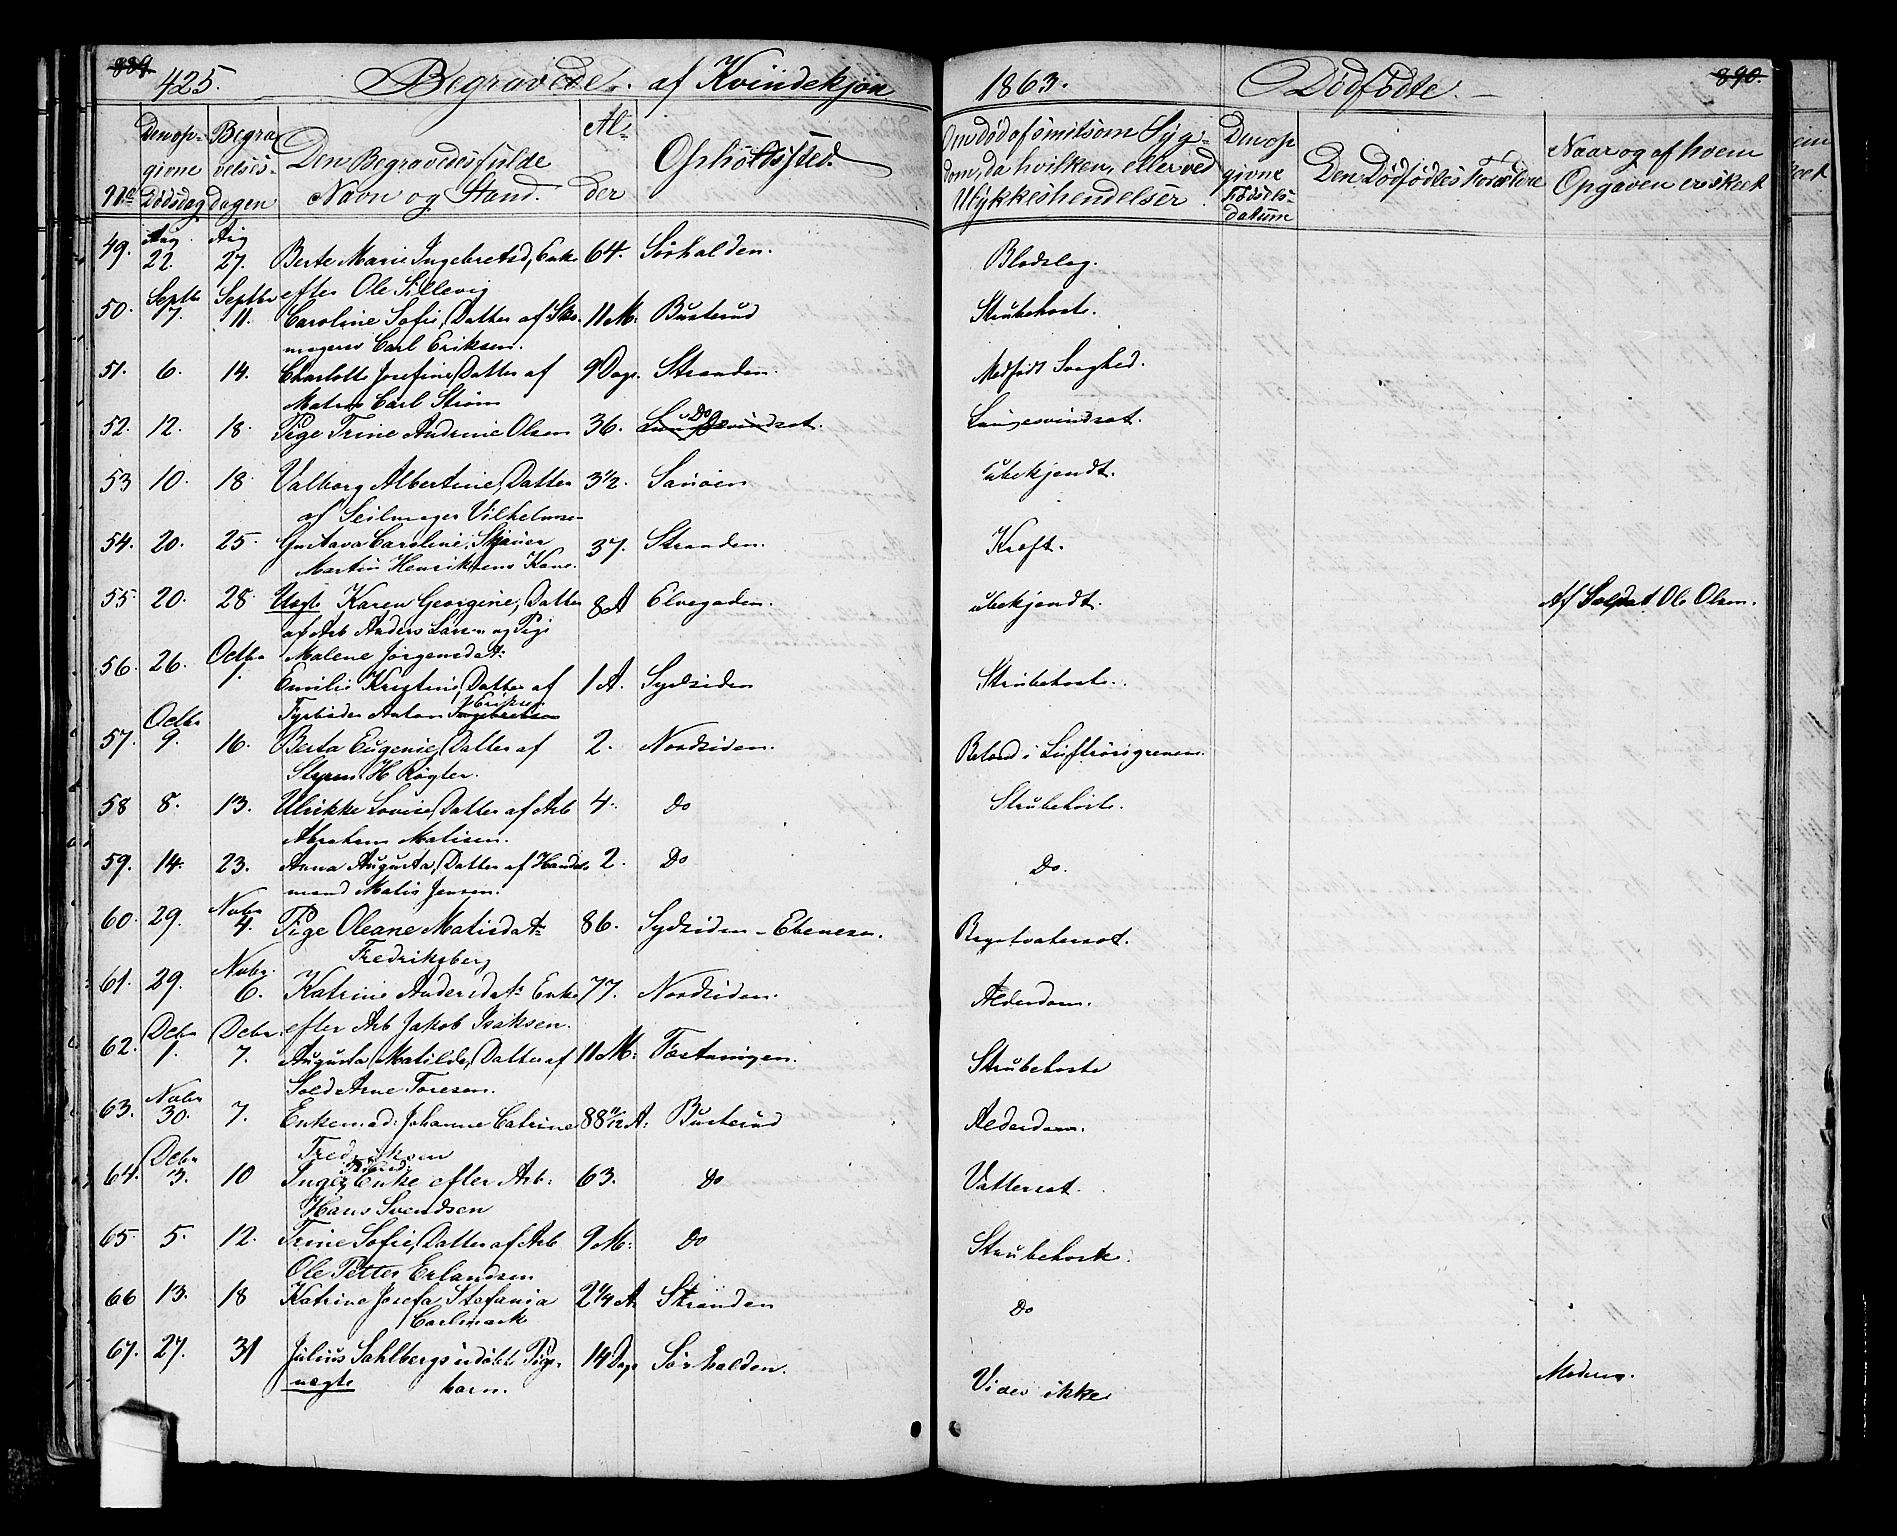 889. 425. Begravede af Kvindekjøn 1863. Dødfødte. 890.
No Den opgivne Dødsdag Begravelsesdagen Den Begravedes fulde Navn og Stand. Alder Opholdssted. Om død af smitsom Sygdom, da hvilken, eller ved Ulykkeshendelser Den opgivne Fødselsdatum Den Dødfødtes Forældre Naar og af hvem Opgaven er skeet
49. Aug 22. Aug 27. Berte Marie Ingebretsd, Enke 64. Sørhalden. Blodslag.
efter Ole Sillevig
50. Septbr 7. Septbr 11. Caroline Sofie, Datter af Sko- 11 M. Busterud Strubehoste.
mager Carl Eriksen.
51. 6. 14. Charlotte Josefine, Datter af 9 Dage. Stranden. Medfødt Svaghed.
Matros Carl Strøm
52. 12. 18. Pige Trine Andrine Olsen 36. Do Lungesvindsot. Lungesvindsot.
53 10. 18. Valborg Albertine, Datter 3 1/2. Sauøen ubekjendt.
af Seilmager Vilhelmsen
54. 20. 25. Gustava Caroline, Skauer 37. Stranden. Kræft.
Martin Henriksens Kone.
55. 20. 28. Uægte Karen Georgine, Datter 8 A Elvegaden. ubekjendt. Af Soldat Ole Olsen.
af Arb Anders Larsen og Pige
Malene Jørgensdat:
56. 26. Octbr 1. Emilie Kristine, Datter af 1 A. Sydsiden Strubehoste.
Fyrbøder Anton Ingebretsen Eriksen
57. Octbr 9. 16. Berta Eugenie, Datter af 2. Nordsiden. Betænd i Luftrørsgrenene.
Styrm H Røgter.
58 8. 13. Ulrikke Lovise, Datter af Arb 4. Do Strubehoste.
Abraham Matisen.
59. 14. 23. Anna Augusta, Datter af Handels- 2. Do Do.
mand Matis Jensen.
60. 29. Novbr 4. Pige Oleane Matisdatr 86. Sydsiden - Ebeneser. Brystvatersot.
Fredriksberg
61. 29. Novbr. 6. Katrine Andersdatr Enke 77. Nordsiden. Alderdom.
efter Arb Jakob Isaksen.
62. Debr 1. Debr 7. Augusta Matilde, Datter af 11 M: Fæstningen. Strubehoste
Sold Arne Toresen.
63. Novbr 30. 7. Enkemad: Johanne Catrine 88 11/12 A: Busterud Alderdom.
Fredriksen
64. Debr 3. 10 Inger Enke efter Arb: 63. Do Vattersot.
Hans Svendsen
65. 5. 12. Trine Sofie, Datter af Arb 9 M: Do Strubehoste.
Ole Petter Erlandsen
66 13. 18 Katrine Josefa Stefania 2 1/4 A Stranden Do
Carlmark
67. 27. 31 Julius Sahlbergs udøbte Pige- 14 Dage Sørhalden. Vides ikke Moderen.
uægte barn.